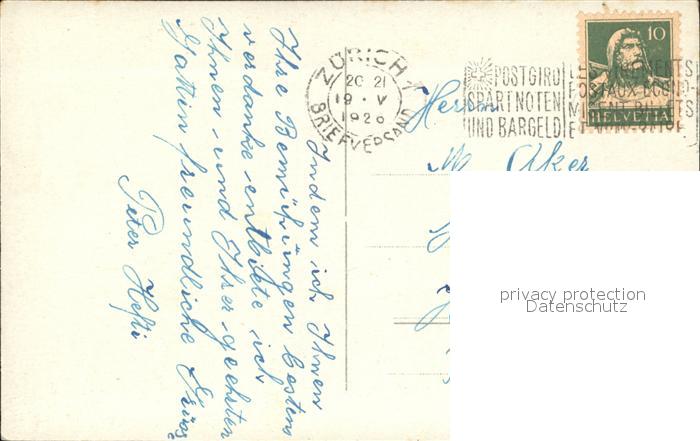 Indem ich Ihnen
Ihre Bemühungen bestens
verdanke entbiete ich
Ihnen und Ihrer geehrten
Gattin freundliche Grüsse
Peter Hefti
ZÜRICH 1
20 21
19 · V
1926
BRIEFVERSAND
POSTGIRO
SPART NOTEN
UND BARGELD
10
HELVETIA
Herrn
Aker
privacy protection
Datenschutz